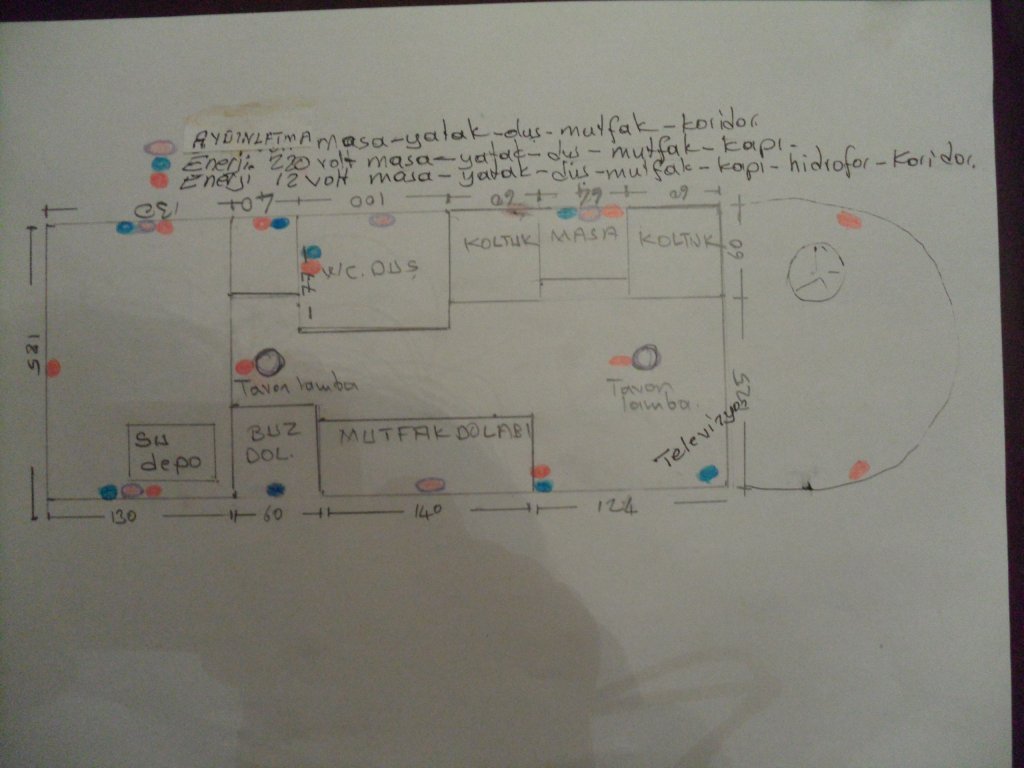 AYDINLATMA masa-yatak-duş-mutfak-koridor.
Enerji 220 volt masa-yatak-duş-mutfak-kapı-
Enerji 12 volt masa-yatak-düş-mutfak-kapı-hidrofor-Koridor.
130 40 100 60 64 60
KOLTUK MASA KOLTUK
W.C. DUŞ
77
60
185
Tavan lamba
Tavan lamba.
125
Televizyon
BUZ DOL.
MUTFAK DOLABI
SU depo
130 60 140 124